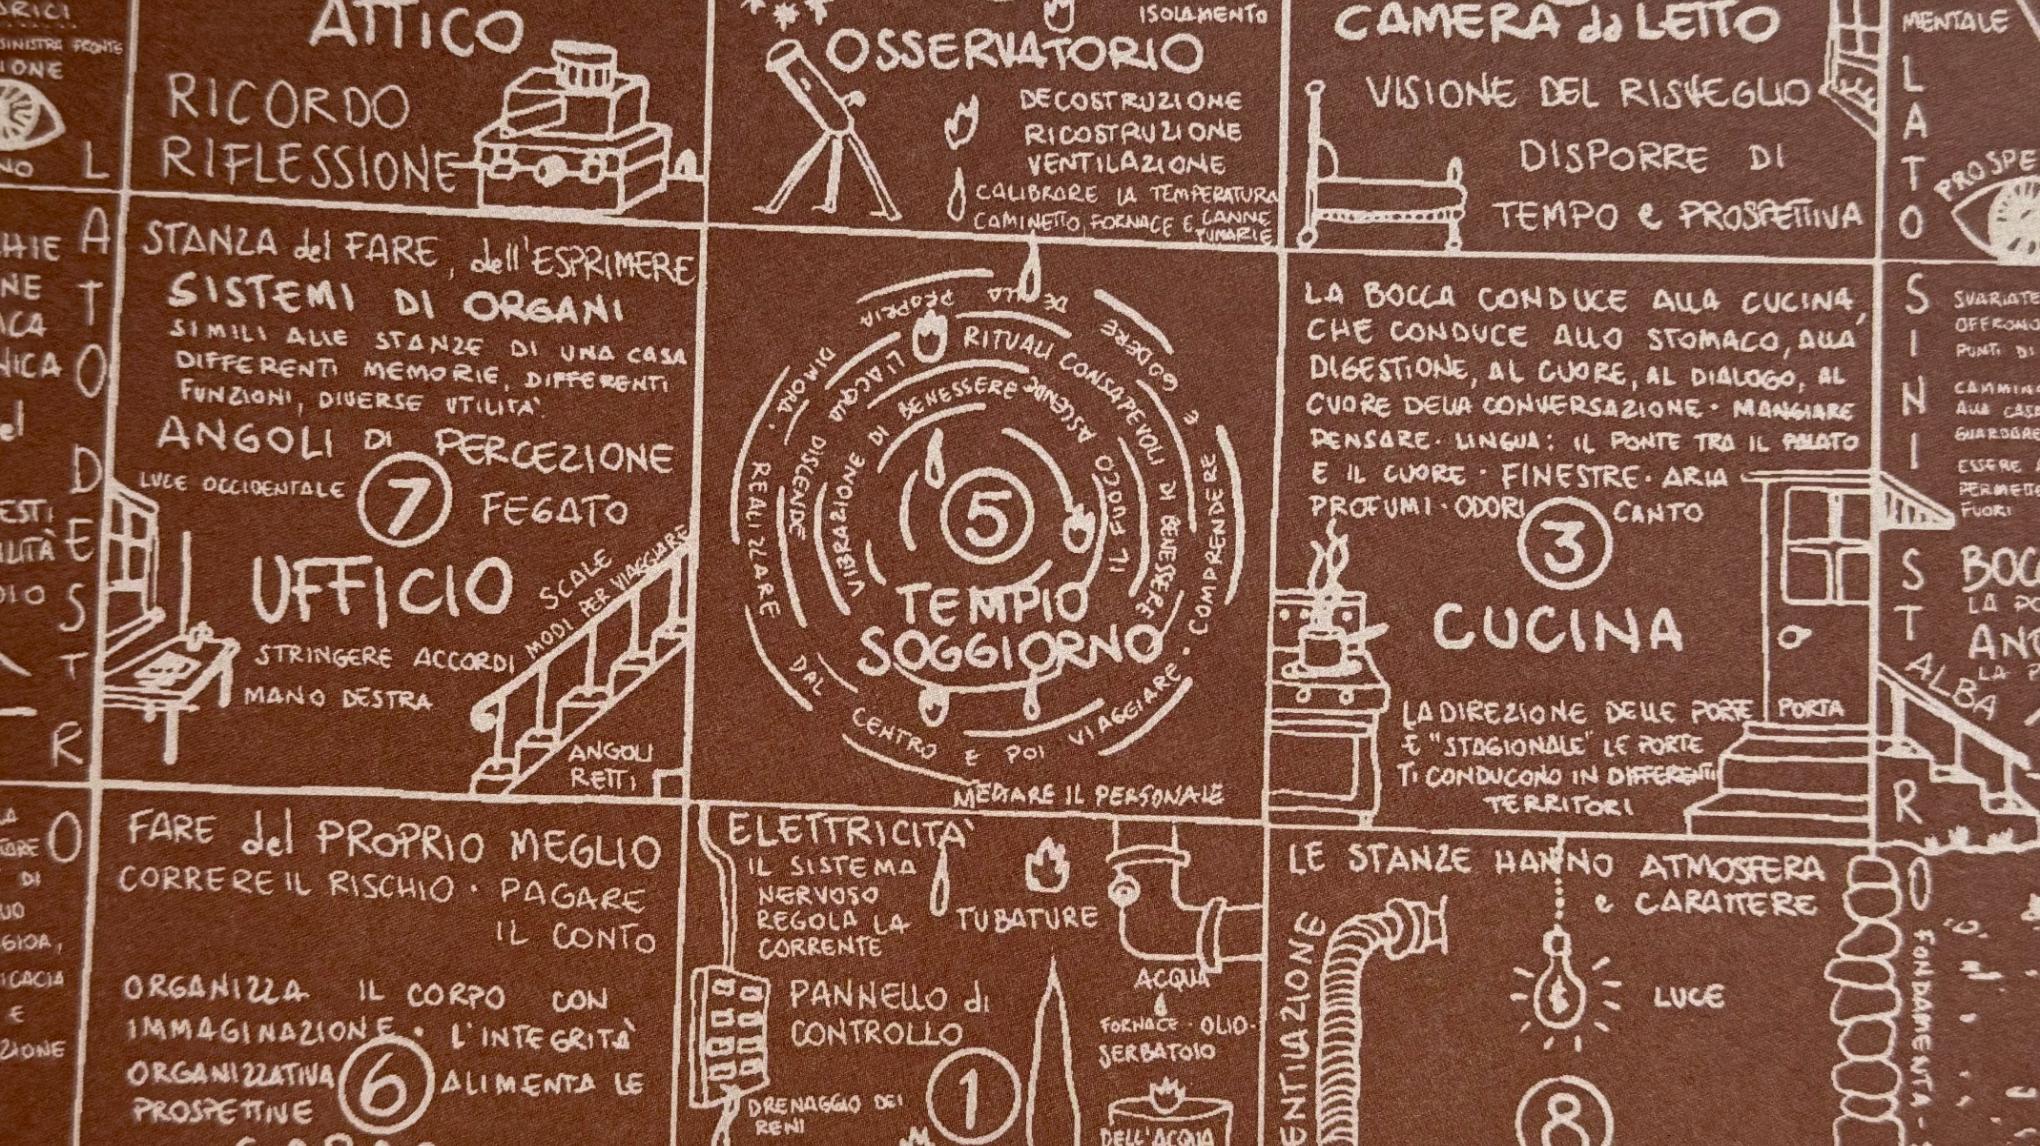 SINISTRA FRONTE
IONE
NO
ATTICO
RICORDO
RIFLESSIONE
ISOLAMENTO
OSSERVATORIO
DECOSTRUZIONE
RICOSTRUZIONE
VENTILAZIONE
CALIBRARE LA TEMPERATURA
CAMINETTO, FORNACE E CANNE
FUMARIE
CAMERA da LETTO
VISIONE DEL RISVEGLIO
DISPORRE DI
TEMPO e PROSPETTIVA
MENTALE
PROSPE
LATO DESTRO
STANZA del FARE, dell'ESPRIMERE
SISTEMI DI ORGANI
SIMILI ALLE STANZE DI UNA CASA
DIFFERENTI MEMORIE, DIFFERENTI
FUNZIONI, DIVERSE UTILITA'
ANGOLI DI PERCEZIONE
LUCE OCCIDENTALE
7
FEGATO
UFFICIO
STRINGERE ACCORDI
MANO DESTRA
SCALE
MODI PER VIAGGIARE
ANGOLI
RETTI
REALIZZARE DAL CENTRO E POI VIAGGIARE · COMPRENDERE E GODERE DELLA PROPRIA DIMORA ·
L'ACQUA DISCENDE
RITUALI CONSAPEVOLI DI BENESSERE
VIBRAZIONE DI BENESSERE
ASCENDE IL FUOCO
5
TEMPIO
SOGGIORNO
MEDIARE IL PERSONALE
LA BOCCA CONDUCE ALLA CUCINA,
CHE CONDUCE ALLO STOMACO, ALLA
DIGESTIONE, AL CUORE, AL DIALOGO, AL
CUORE DELLA CONVERSAZIONE · MANGIARE
PENSARE · LINGUA: IL PONTE TRA IL PALATO
E IL CUORE · FINESTRE · ARIA
PROFUMI · ODORI
CANTO
3
CUCINA
LA DIREZIONE DELLE PORTE
E' "STAGIONALE" LE PORTE
TI CONDUCONO IN DIFFERENTI
TERRITORI
PORTA
LATO SINISTRO
SVARIATE
OFFRONO
PUNTI DI
CAMMIN
ALLA CAS
GUARDARE
ESSERE
PERMET
FUORI
BOC
LA PO
ANG
LA P
ALBA
FARE del PROPRIO MEGLIO
CORRERE IL RISCHIO · PAGARE
IL CONTO
ORGANIZZA IL CORPO CON
IMMAGINAZIONE · L'INTEGRITÀ
ORGANIZZATIVA
6
ALIMENTA LE
PROSPETTIVE
ELETTRICITA'
IL SISTEMA
NERVOSO
REGOLA LA
CORRENTE
TUBATURE
PANNELLO di
CONTROLLO
1
DRENAGGIO DEI
RENI
ACQUA
FORNACE · OLIO ·
SERBATOIO
DELL'ACQUA
LE STANZE HANNO ATMOSFERA
e CARATTERE
LUCE
8
FONDAMENTA